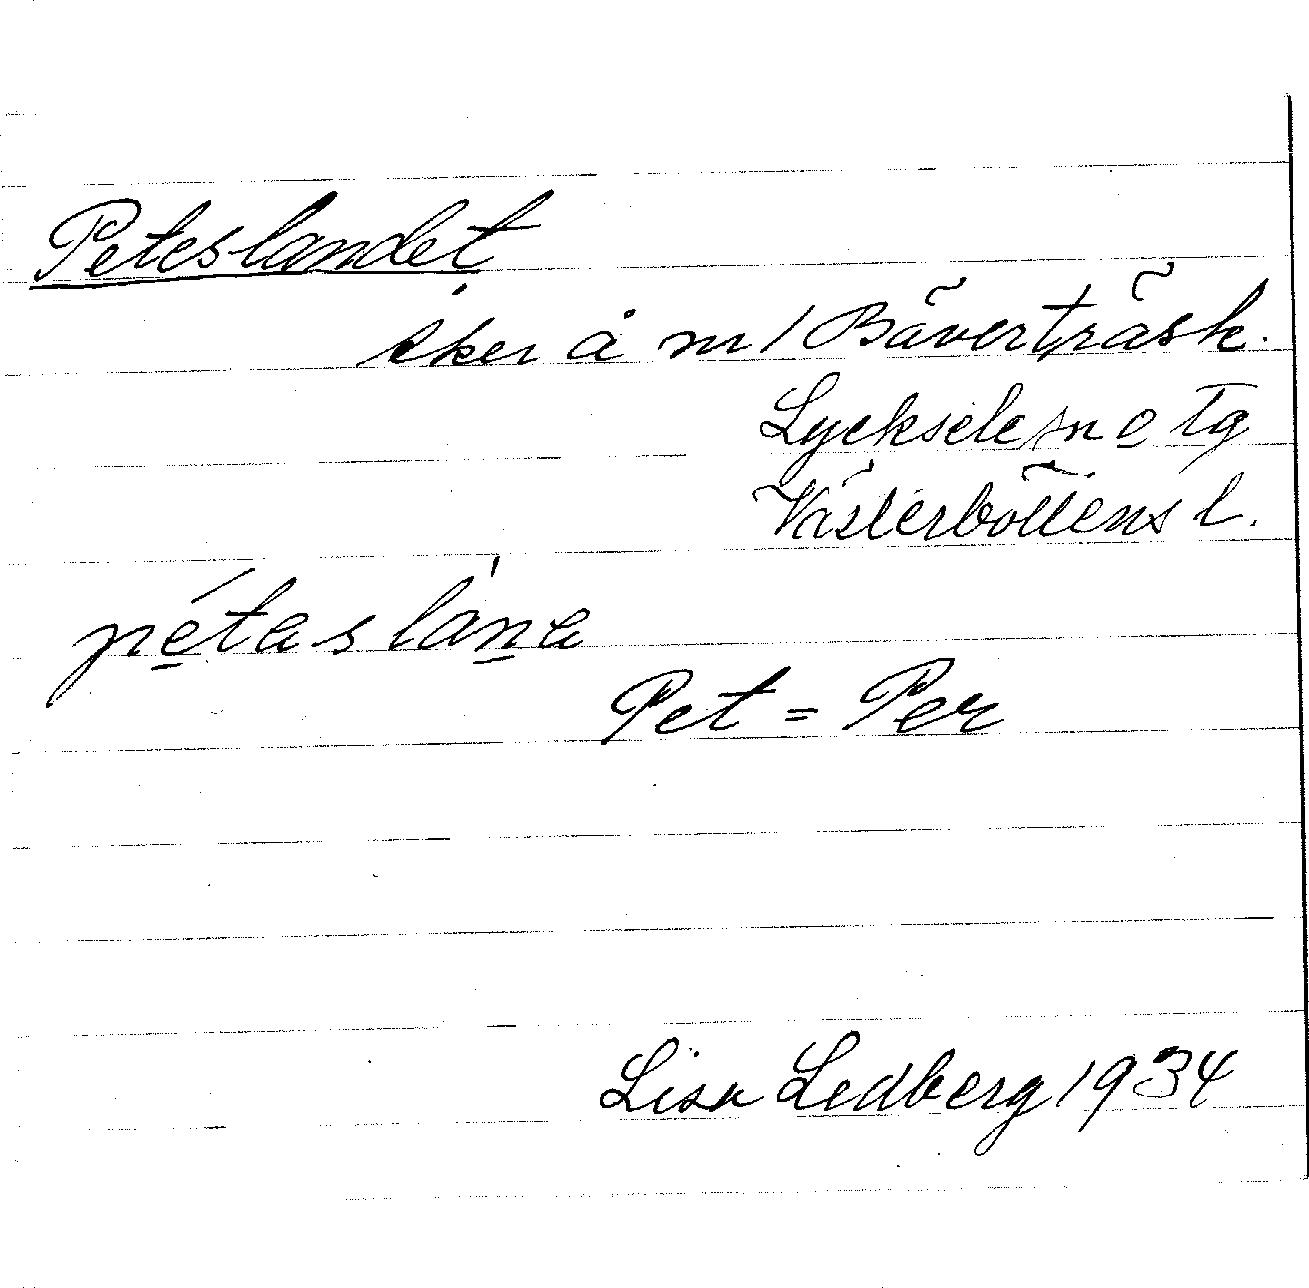 Peteslandet
åker å m/ Bäverträsk.
Lycksele sn o tg
Västerbottens l.
pétaslána
Pet = Per
Lisa Ledberg 1934